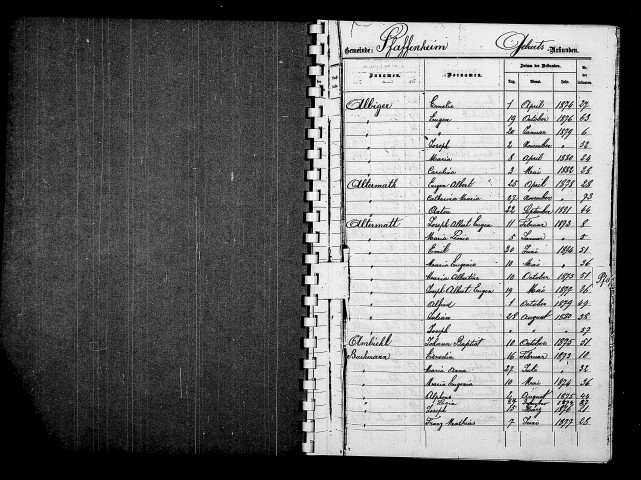 Gemeinde: Pfaffenheim Geburts-Urkunden.
Zunamen. Vornamen. Datum der Urkunden. Nr. der Urkunden.
Tag. Monat. Jahr.
Albiger Emelie 1 April 1874 27
" Eugen 19 October 1876 63
" " 20 Januar 1879 6
" Joseph 2 November " 52
" Maria 8 April 1880 24
" Carolina 3 Mai 1882 28
Altermath Eugen Albert 25 April 1878 28
" Catharina Maria 27 November " 73
" 22 September 1881 64
Altermatt Joseph Albert Eugen 11 Februar 1873 8
" Maria 5 Januar " 5
" Emil 30 Juni 1874 51
" Maria Eugenie 10 Mai " 36
" Maria Albertine 10 October 1875 51
" Joseph Albert Eugen 19 Mai 1877 36
" Alfred 1 October 1879 69
" Julian 28 August 1880 38
" Joseph " " " 57
Johann Baptist 10 October 1875 51
Bachmann 16 Februar 1873 10
" Maria Anna 27 Juli " 32
" Maria Eugenia 10 Mai 1874 36
" Alphons 4 August 1875 44
" 27
" Joseph 15 März 1876 21
" Franz Mathias 7 Juni 1877 28